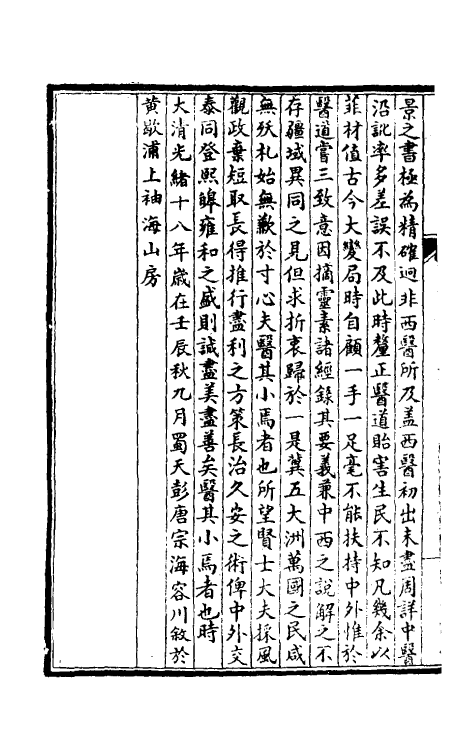 景之書極為精確迥非西醫所及蓋西醫初出未盡周詳中醫
沿訛率多差誤不及此時釐正醫道貽害生民不知凡幾余以
菲材值古今大變局時自顧一手一足毫不能扶持中外惟於
醫道嘗三致意因摘靈素諸經錄其要義兼中西之說解之不
存疆域異同之見但求折衷歸於一是冀五大洲萬國之民咸
無殀札始無歉於寸心夫醫其小焉者也所望賢士大夫採風
觀政棄短取長得推行盡利之方策長治久安之術俾中外交
泰同登熙皞雍和之盛則誠盡美盡善矣醫其小焉者也時
大清光緒十八年歲在壬辰秋九月蜀天彭唐宗海容川敘於
黃歇浦上袖海山房